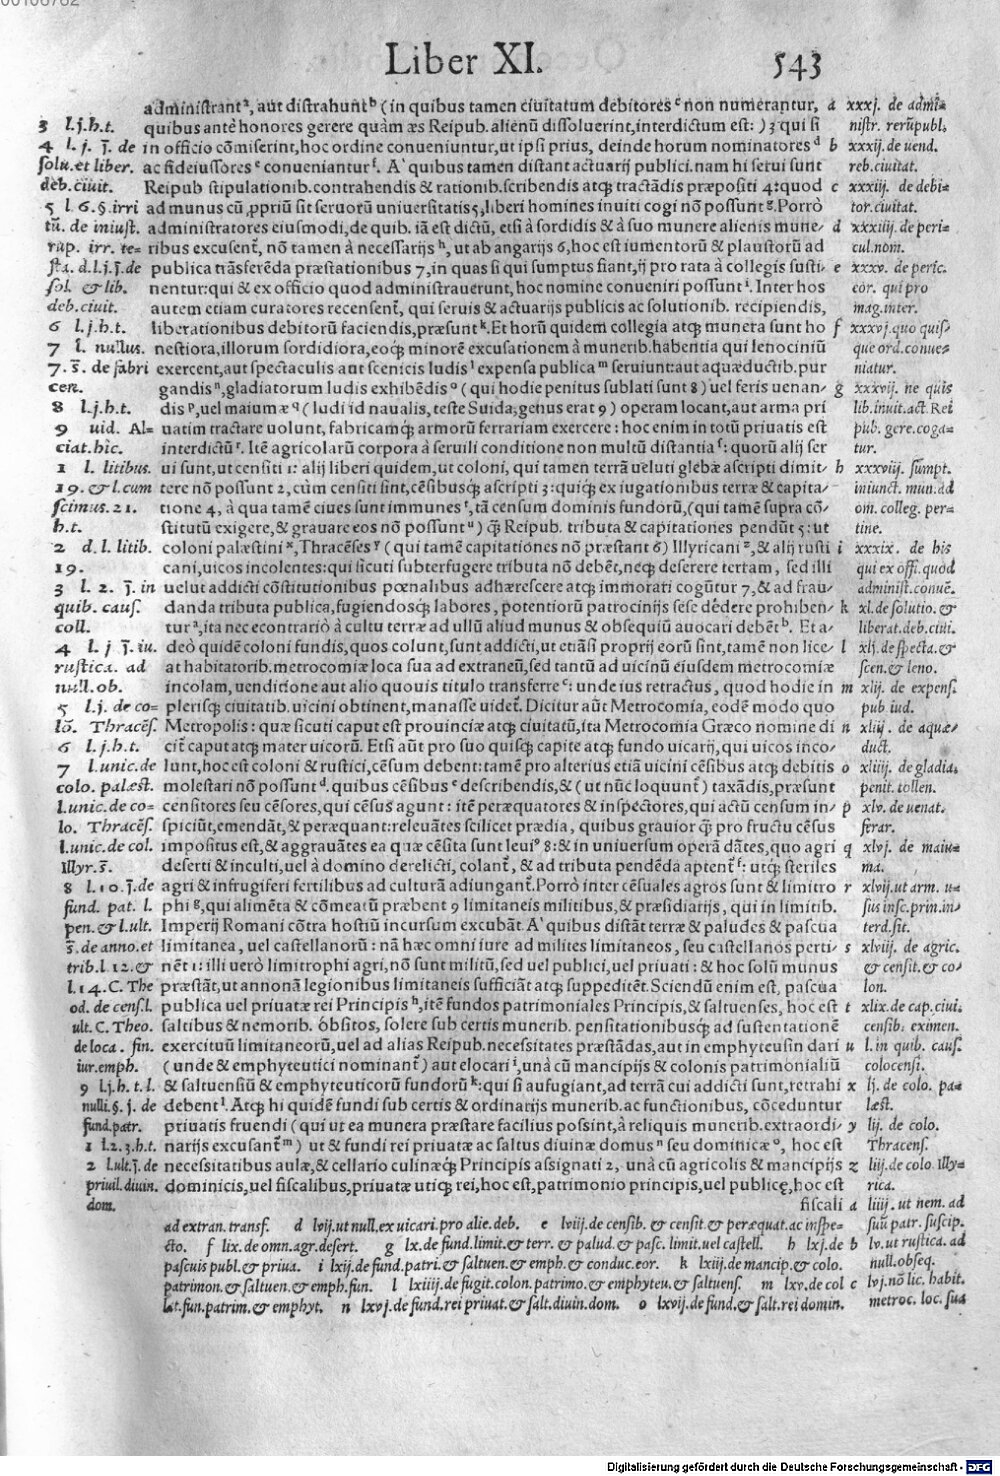 00106762
Liber XI.
543
administrant², aut distrahunt ᵇ (in quibus tamen ciuitatum debitores ᶜ non numerantur,
quibus antè honores gerere quàm æs Reipub. alienũ dissoluerint, interdictum est: ) 3 qui si
in officio cõmiserint, hoc ordine conueniuntur, ut ipsi prius, deinde horum nominatores ᵈ
ac fideiussores ᵉ conueniantur ᶠ. A' quibus tamen distant actuarij publici. nam hi serui sunt
Reipub stipulationib. contrahendis & rationib. scribendis atq; tractãdis præpositi 4: quod
ad munus cũ, ppriũ sit seruorũ uniuersitatis 5, liberi homines inuiti cogi nõ possunt ᵍ. Porrò
administratores eiusmodi, de quib. iã est dictũ, etsi à sordidis & à suo munere alienis mune/
ribus excusent̃, nõ tamen à necessarijs ʰ, ut ab angarijs 6, hoc est iumentorũ & plaustorũ ad
publica trãsferẽda præstationibus 7, in quas si qui sumptus fiant, ij pro rata à collegis susti/
nentur: qui & ex officio quod administrauerunt, hoc nomine conueniri possunt ⁱ. Inter hos
autem etiam curatores recensent̃, qui seruis & actuarijs publicis ac solutionib. recipiendis,
liberationibus debitorũ faciendis, præsunt ᵏ. Et horũ quidem collegia atq; munera sunt ho
nestiora, illorum sordidiora, eoq; minorẽ excusationem à munerib. habentia qui lenociniũ
exercent, aut spectaculis aut scenicis ludis ˡ expensa publica ᵐ seruiunt: aut aquæductib. pur
gandis ⁿ, gladiatorum ludis exhibẽdis ᵒ (qui hodie penitus sublati sunt 8) uel feris uenan/
dis ᵖ, uel maiumæ q (ludi id naualis, teste Suida, genus erat 9) operam locant, aut arma pri
uatim tractare uolunt, fabricamq; armorũ ferrariam exercere: hoc enim in totũ priuatis est
interdictũ ʳ. Itẽ agricolarũ corpora à seruili conditione non multũ distantia ˢ: quorũ alij ser
ui sunt, ut censiti 1: alij liberi quidem, ut coloni, qui tamen terrã ueluti glebæ ascripti dimit/
tere nõ possunt 2, cùm censiti sint, cẽsibusq; ascripti 3: quiq; ex iugationibus terræ & capita/
tione 4, à qua tamẽ ciues sunt immunes ᵗ, tã censum dominis fundorũ, (qui tamẽ supra cõ/
stitutũ exigere, & grauare eos nõ possunt ᵘ) q̃ Reipub. tributa & capitationes pendũt 5: ut
coloni palæstini ˣ, Thracẽses ʸ (qui tamẽ capitationes nõ præstant 6) Illyricani ᶻ, & alij rusti
cani, uicos incolentes: qui sicuti subterfugere tributa nõ debẽt, neq; deserere terram, sed illi
uelut addicti cõstitutionibus pœnalibus adhærescere atq; immorati cogũtur 7, & ad frau/
danda tributa publica, fugiendosq; labores, potentiorũ patrocinijs sese dedere prohiben/
tur ᵃ, ita nec econtrariò à cultu terræ ad ullũ aliud munus & obsequiũ auocari debẽt ᵇ. Et a/
deò quidẽ coloni fundis, quos colunt, sunt addicti, ut etiãsi proprij eorũ sint, tamẽ non lice/
at habitatorib. metrocomiæ loca sua ad extraneũ, sed tantũ ad uicinũ eiusdem metrocomiæ
incolam, uenditione aut alio quouis titulo transferre ᶜ: unde ius retractus, quod hodie in
plerisq; ciuitatib. uicini obtinent, manasse uidet̃. Dicitur aũt Metrocomia, eodẽ modo quo
Metropolis: quæ sicuti caput est prouinciæ atq; ciuitatũ, ita Metrocomia Græco nomine di
cit̃ caput atq; mater uicorũ. Etsi aũt pro suo quisq; capite atq; fundo uicarij, qui uicos inco/
lunt, hoc est coloni & rustici, cẽsum debent: tamẽ pro alterius etiã uicini cẽsibus atq; debitis
molestari nõ possunt ᵈ. quibus cẽsibus ᵉ describendis, & (ut nũc loquunt̃) taxãdis, præsunt
censitores seu cẽsores, qui cẽsus agunt: itẽ peræquatores & inspectores, qui actũ censum in/
spiciũt, emendãt, & peræquant: releuãtes scilicet prædia, quibus grauior q̃ pro fructu cẽsus
impositus est, & aggrauãtes ea quæ cẽsita sunt leuiᵒ 8: & in uniuersum operã dãtes, quo agri
deserti & inculti, uel à domino derelicti, colant̃, & ad tributa pendẽda aptent̃ ᶠ: utq; steriles
agri & infrugiferi fertilibus ad culturã adiungant̃. Porrò inter cẽsuales agros sunt & limitro
phi ᵍ, qui alimẽta & cõmeatũ præbent 9 limitaneis militibus, & præsidiarijs, qui in limitib.
Imperij Romani cõtra hostiũ incursum excubãt. A' quibus distãt terræ & paludes & pascua
limitanea, uel castellanorũ: nã hæc omni iure ad milites limitaneos, seu castellanos perti/
nẽt 1: illi uerò limitrophi agri, nõ sunt militũ, sed uel publici, uel priuati: & hoc solũ munus
præstãt, ut annonã legionibus limitaneis sufficiãt atq; suppeditẽt. Sciendũ enim est, pascua
publica uel priuatæ rei Principis ʰ, itẽ fundos patrimoniales Principis, & saltuenses, hoc est
saltibus & nemorib. obsitos, solere sub certis munerib. pensitationibusq; ad sustentationẽ
exercituũ limitaneorũ, uel ad alias Reipub. necessitates præstãdas, aut in emphyteusin dari
(unde & emphyteutici nominant̃) aut elocari ⁱ, unà cũ mancipijs & colonis patrimonialiũ
& saltuensiũ & emphyteuticorũ fundorũ ᵏ: qui si aufugiant, ad terrã cui addicti sunt, retrahi
debent ˡ. Atq; hi quidẽ fundi sub certis & ordinarijs munerib. ac functionibus, cõceduntur
priuatis fruendi (qui ut ea munera præstare facilius possint, à reliquis munerib. extraordi/
narijs excusant̃ ᵐ) ut & fundi rei priuatæ ac saltus diuinæ domus ⁿ seu dominicæ ᵒ, hoc est
necessitatibus aulæ, & cellario culinæq; Principis assignati 2, unà cũ agricolis & mancipijs
dominicis, uel fiscalibus, priuatæ utiq; rei, hoc est, patrimonio principis, uel publicę, hoc est
fiscali
3 l.j.h.t.
4 l. j. j̃. de
solu. et liber.
deb. ciuit.
5 l. 6. §. irri
tũ. de iniust.
rup. irr. te=
sta. d.l.j.j̃. de
sol. & lib.
deb. ciuit.
6 l.j.h.t.
7 l. nullus.
7. s̃. de fabri
cen.
8 l.j.h.t.
9 uid. Al=
ciat. hic.
1 l. litibus.
19. & l. cum
scimus. 21.
h.t.
2 d. l. litib.
19.
3 l. 2. j̃. in
quib. caus.
coll.
4 l. j j̃. iu.
rustica. ad
null. ob.
5 l.j. de co=
lõ. Thracẽs.
6 l.j.h.t.
7 l. unic. de
colo. palæst.
l. unic. de co=
lo. Thracẽs.
l. unic. de col.
Illyr. s̃.
8 l. 10. j̃. de
fund. pat. l.
pen. & l. ult.
s̃. de anno. et
trib. l 12. &
l. 14. C. The
od. de cens. l.
ult. C. Theo.
de loca. fin.
iur. emph.
9 l.j.h.t. l.
nulli. §. j. de
fund. patr.
1 l.2.3.h.t.
2 l. ult. j̃. de
priuil. diuin.
dom.
a xxxj. de admi=
nistr. rerũpubl.
b xxxij. de uend.
reb. ciuitat.
c xxxiij. de debi=
tor. ciuitat.
d xxxiiij. de peri=
cul. nom.
e xxxv. de peric.
eor. qui pro
mag. inter.
f xxxvj. quo quis/
que ord. conue=
niatur.
g xxxvij. ne quis
lib. inuit. act. Rei
pub. gere. coga=
tur.
h xxxviij. sumpt.
iniunct. mun. ad
om. colleg. per=
tine.
i xxxix. de his
qui ex off. quod
administ. conuẽ.
k xl. de solutio. &
liberat. deb. ciui.
l xlj. de specta. &
scen. & leno.
m xlij. de expens.
pub iud.
n xliij. de aquæ/
duct.
o xliiij. de gladia.
penit. tollen.
p xlv. de uenat.
ferar.
q xlvj. de maiu=
ma.
r xlvij. ut arm. u=
sus insc. prin. in/
terd. sit.
s xlviij. de agric.
& censit. & co/
lon.
t xlix. de cap. ciui.
censib. eximen.
u l. in quib. caus.
colocensi.
x lj. de colo. pa=
læst.
y lij. de colo.
Thracens.
z liij. de colo. Illy=
rica.
a liiij. ut nem. ad
suũ patr. suscip.
b lv. ut rustica. ad
null. obseq.
c lvj. nõ lic. habit.
metroc. loc. sua
ad extran. transf. d lvij. ut null. ex uicari. pro alie. deb. e lviij. de censib. & censit. & peræquat. ac inspe=
cto. f lix. de omn. agr. desert. g lx. de fund. limit. & terr. & palud. & pasc. limit. uel castell. h lxj. de
pascuis publ. & priua. i lxij. de fund. patri. & saltuen. & emph. & conduc. eor. k lxiij. de mancip. & colo.
patrimon. & saltuen. & emph. fun. l lxiiij. de fugit. colon. patrimo. & emphyteu. & saltuens. m lxv. de col
lat. fun. patrim. & emphyt. n lxvj. de fund. rei priuat. & salt. diuin. dom. o lxvij. de fund. & salt. rei domin.
Digitalisierung gefördert durch die Deutsche Forschungsgemeinschaft - DFG